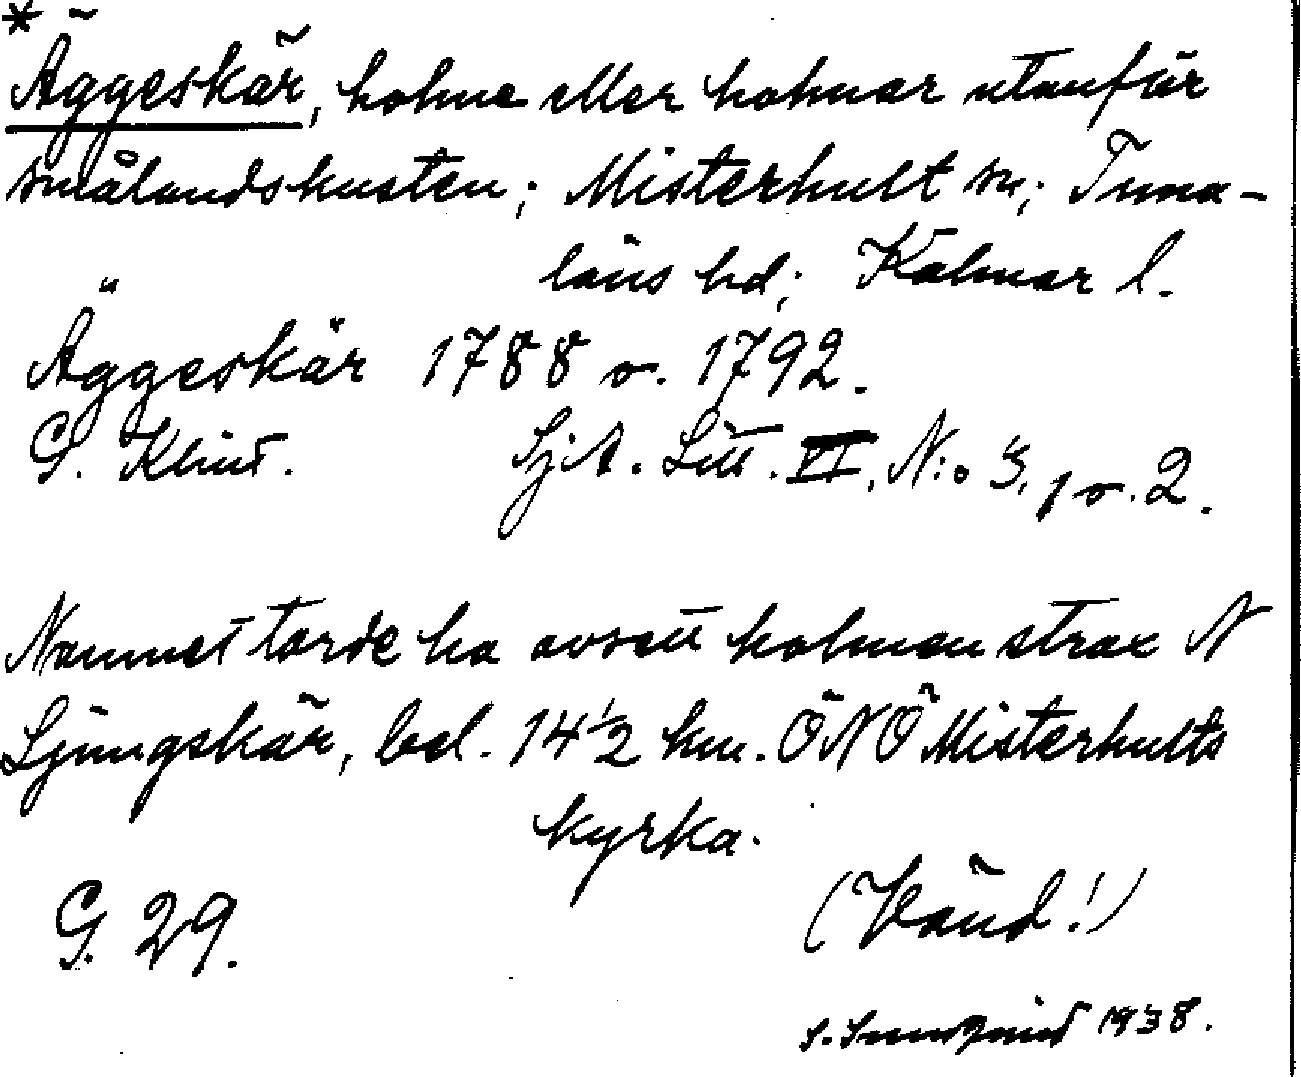 *
Äggeskär, holme eller holmar utanför
smålandskusten; Misterhult sn; Tuna-
läns hd; Kalmar l.
Äggeskär 1788 o. 1792.
G. Klint. SjA. Litt. VI, N:o 3, 1 o. 2.
Namnet torde ha avsett holmen strax N
Ljungskär, bel. 14 1/2 km. ÖNÖ Misterhults
kyrka.
G. 29. (Vänd!)
S. Sundqvist 1938.